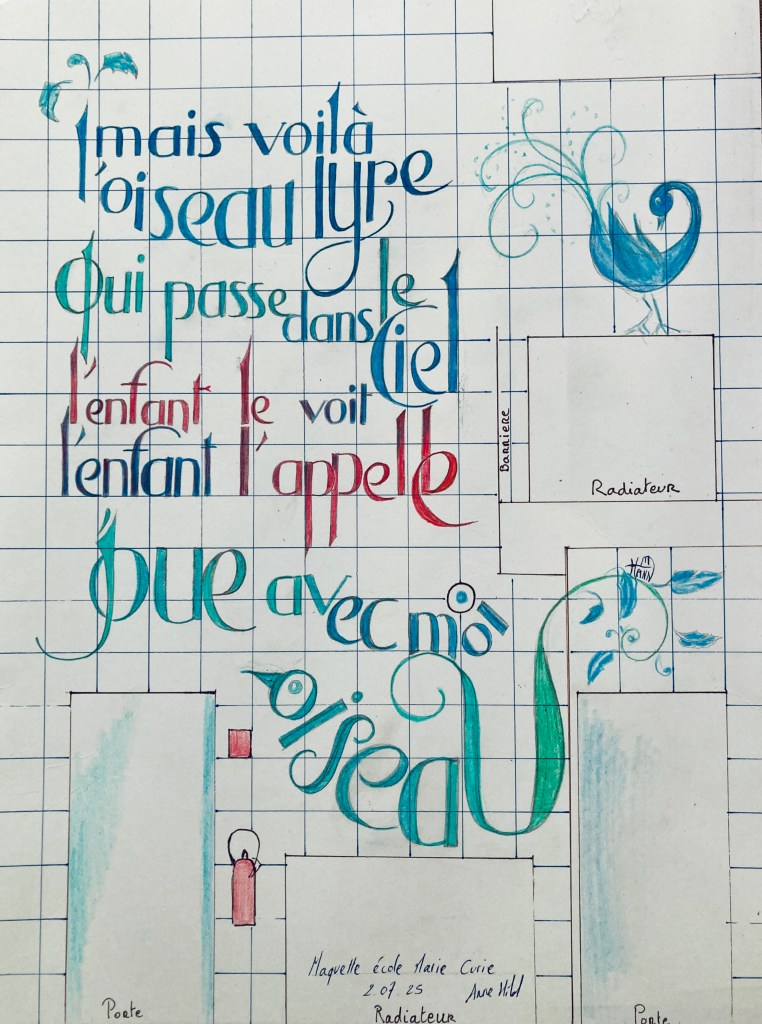 mais voilà
l'oiseau lyre
qui passe dans le
ciel
l'enfant le voit
l'enfant l'appelle
Joue avec moi
oiseau
BARRIERE
Radiateur
Maquette école Marie Curie
2.07.25 Anne
Radiateur
Porte
Porte